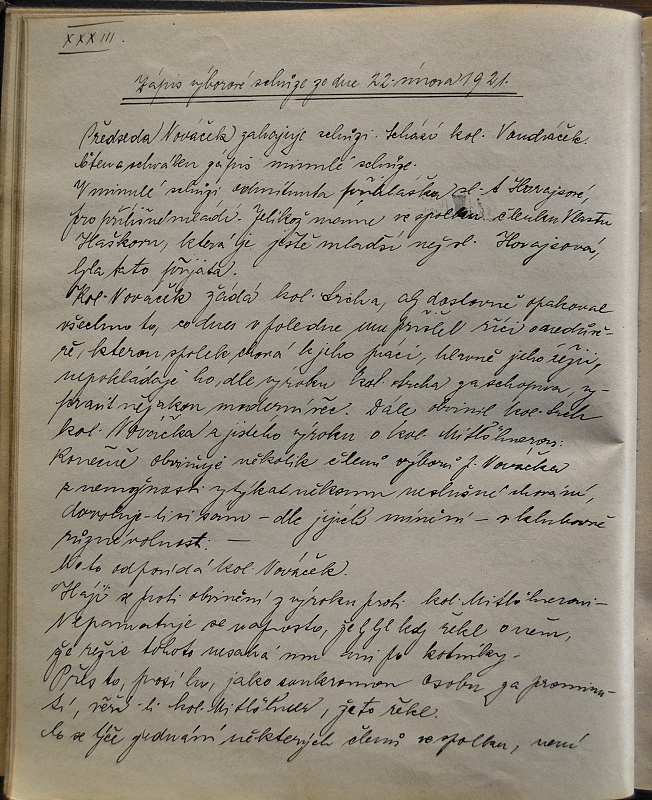 XXXIII.
Zápis výborové schůze ze dne 22. února 1921.
Předseda Nováček zahajuje schůzi. Schází kol. Vondráček.
Čten a schválen zápis minulé schůze.
V minulé schůzi odmítnuta přihláška sl. A. Horajsové,
pro přílišné mládí. Jelikož máme ve spolku členku Vlastu
Haškovu, která je ještě mladší než sl. Horajsová,
byla tato přijata.
Kol. Nováček žádá kol. Srcha, aby doslovně opakoval
všechno to, co dnes v poledne mu přišel říci o nedůvě-
ře, kterou spolek chová k jeho práci, hlavně jeho režii,
nepokládaje ho, dle výroku kol. Srcha za schopna, vy-
pravit nějakou moderní věc. Dále obvinil kol. Srch
kol. Nováčka z jistého výroku o kol. Mitlöhnerovi.
Konečně obviňuje několik členů výboru J. Nováčka
z nemožnosti vytýkat někomu neslušné chování,
dovoluje-li si sám – dle jejich mínění – v klubovně
různé volnosti. —
Na to odpovídá kol. Nováček.
Hájí se proti obvinění z výroku proti kol. Mitlöhnerovi –
Nepamatuje se naprosto, že by byl kdy řekl o něm,
že režie tohoto nesahá mu ani po kotníky.
Přes to, prosí ho, jako soukromou osobu za prominu-
tí, věří-li kol. Mitlöhner, že to řekl.
Co se týče jednání některých členů ve spolku, není